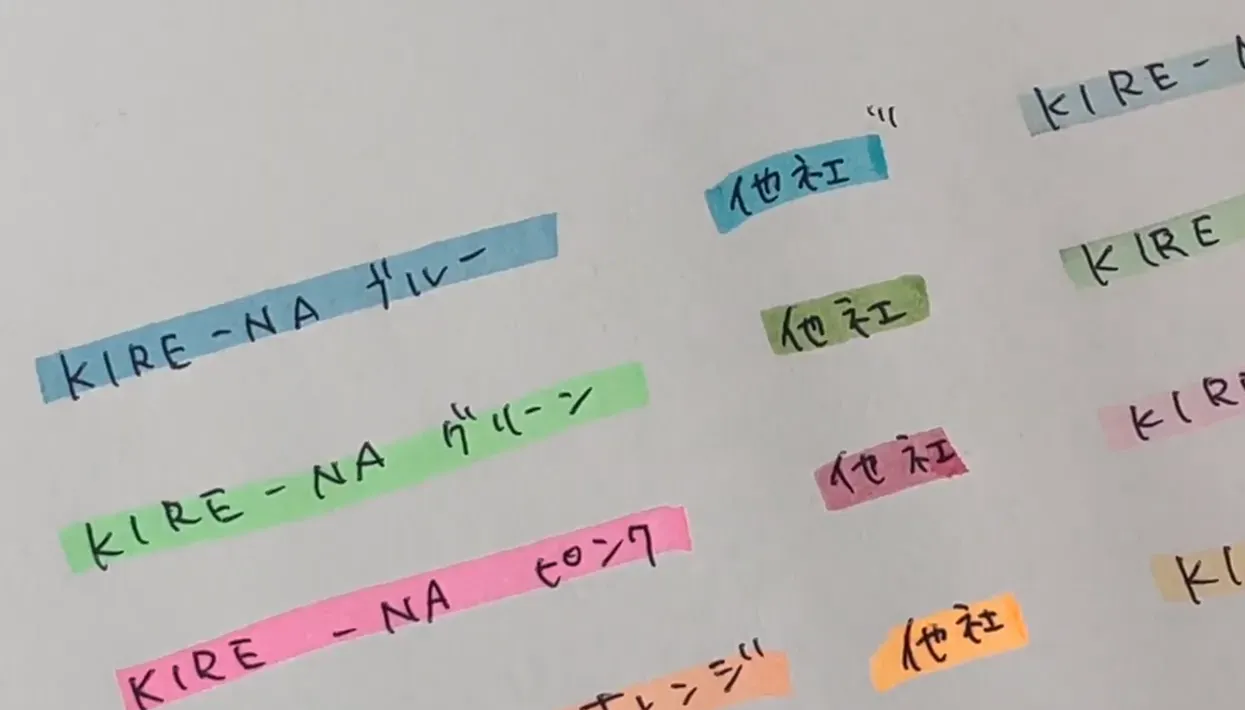 KIRE-NA ブルー
KIRE-NA グリーン
KIRE-NA ピンク
オレンジ
他社
他社
他社
他社
KIRE-
KIRE
KIR
KI